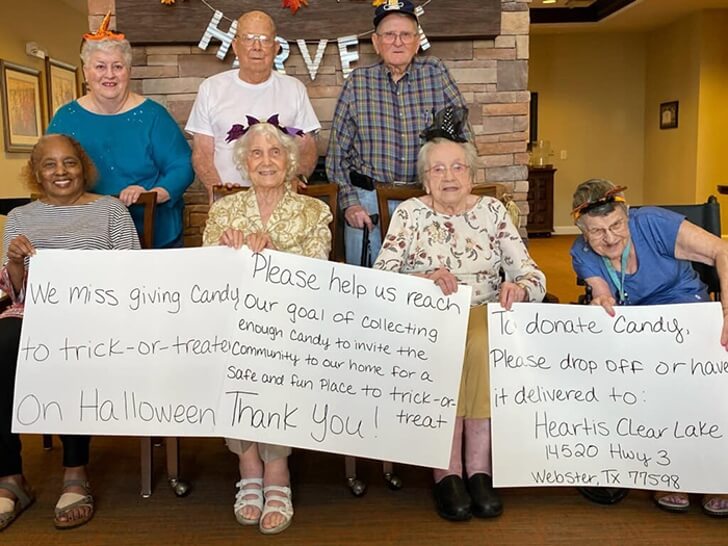 HARVE
We miss giving Candy
to trick-or-treate
On Halloween
Please help us reach
Our goal of collecting
enough Candy to invite the
Community to our home for a
Safe and fun Place to trick-or-
treat
Thank You!
To donate Candy,
Please drop off or have
it delivered to:
Heartis Clear Lake
14520 Hwy 3
Webster, TX 77598